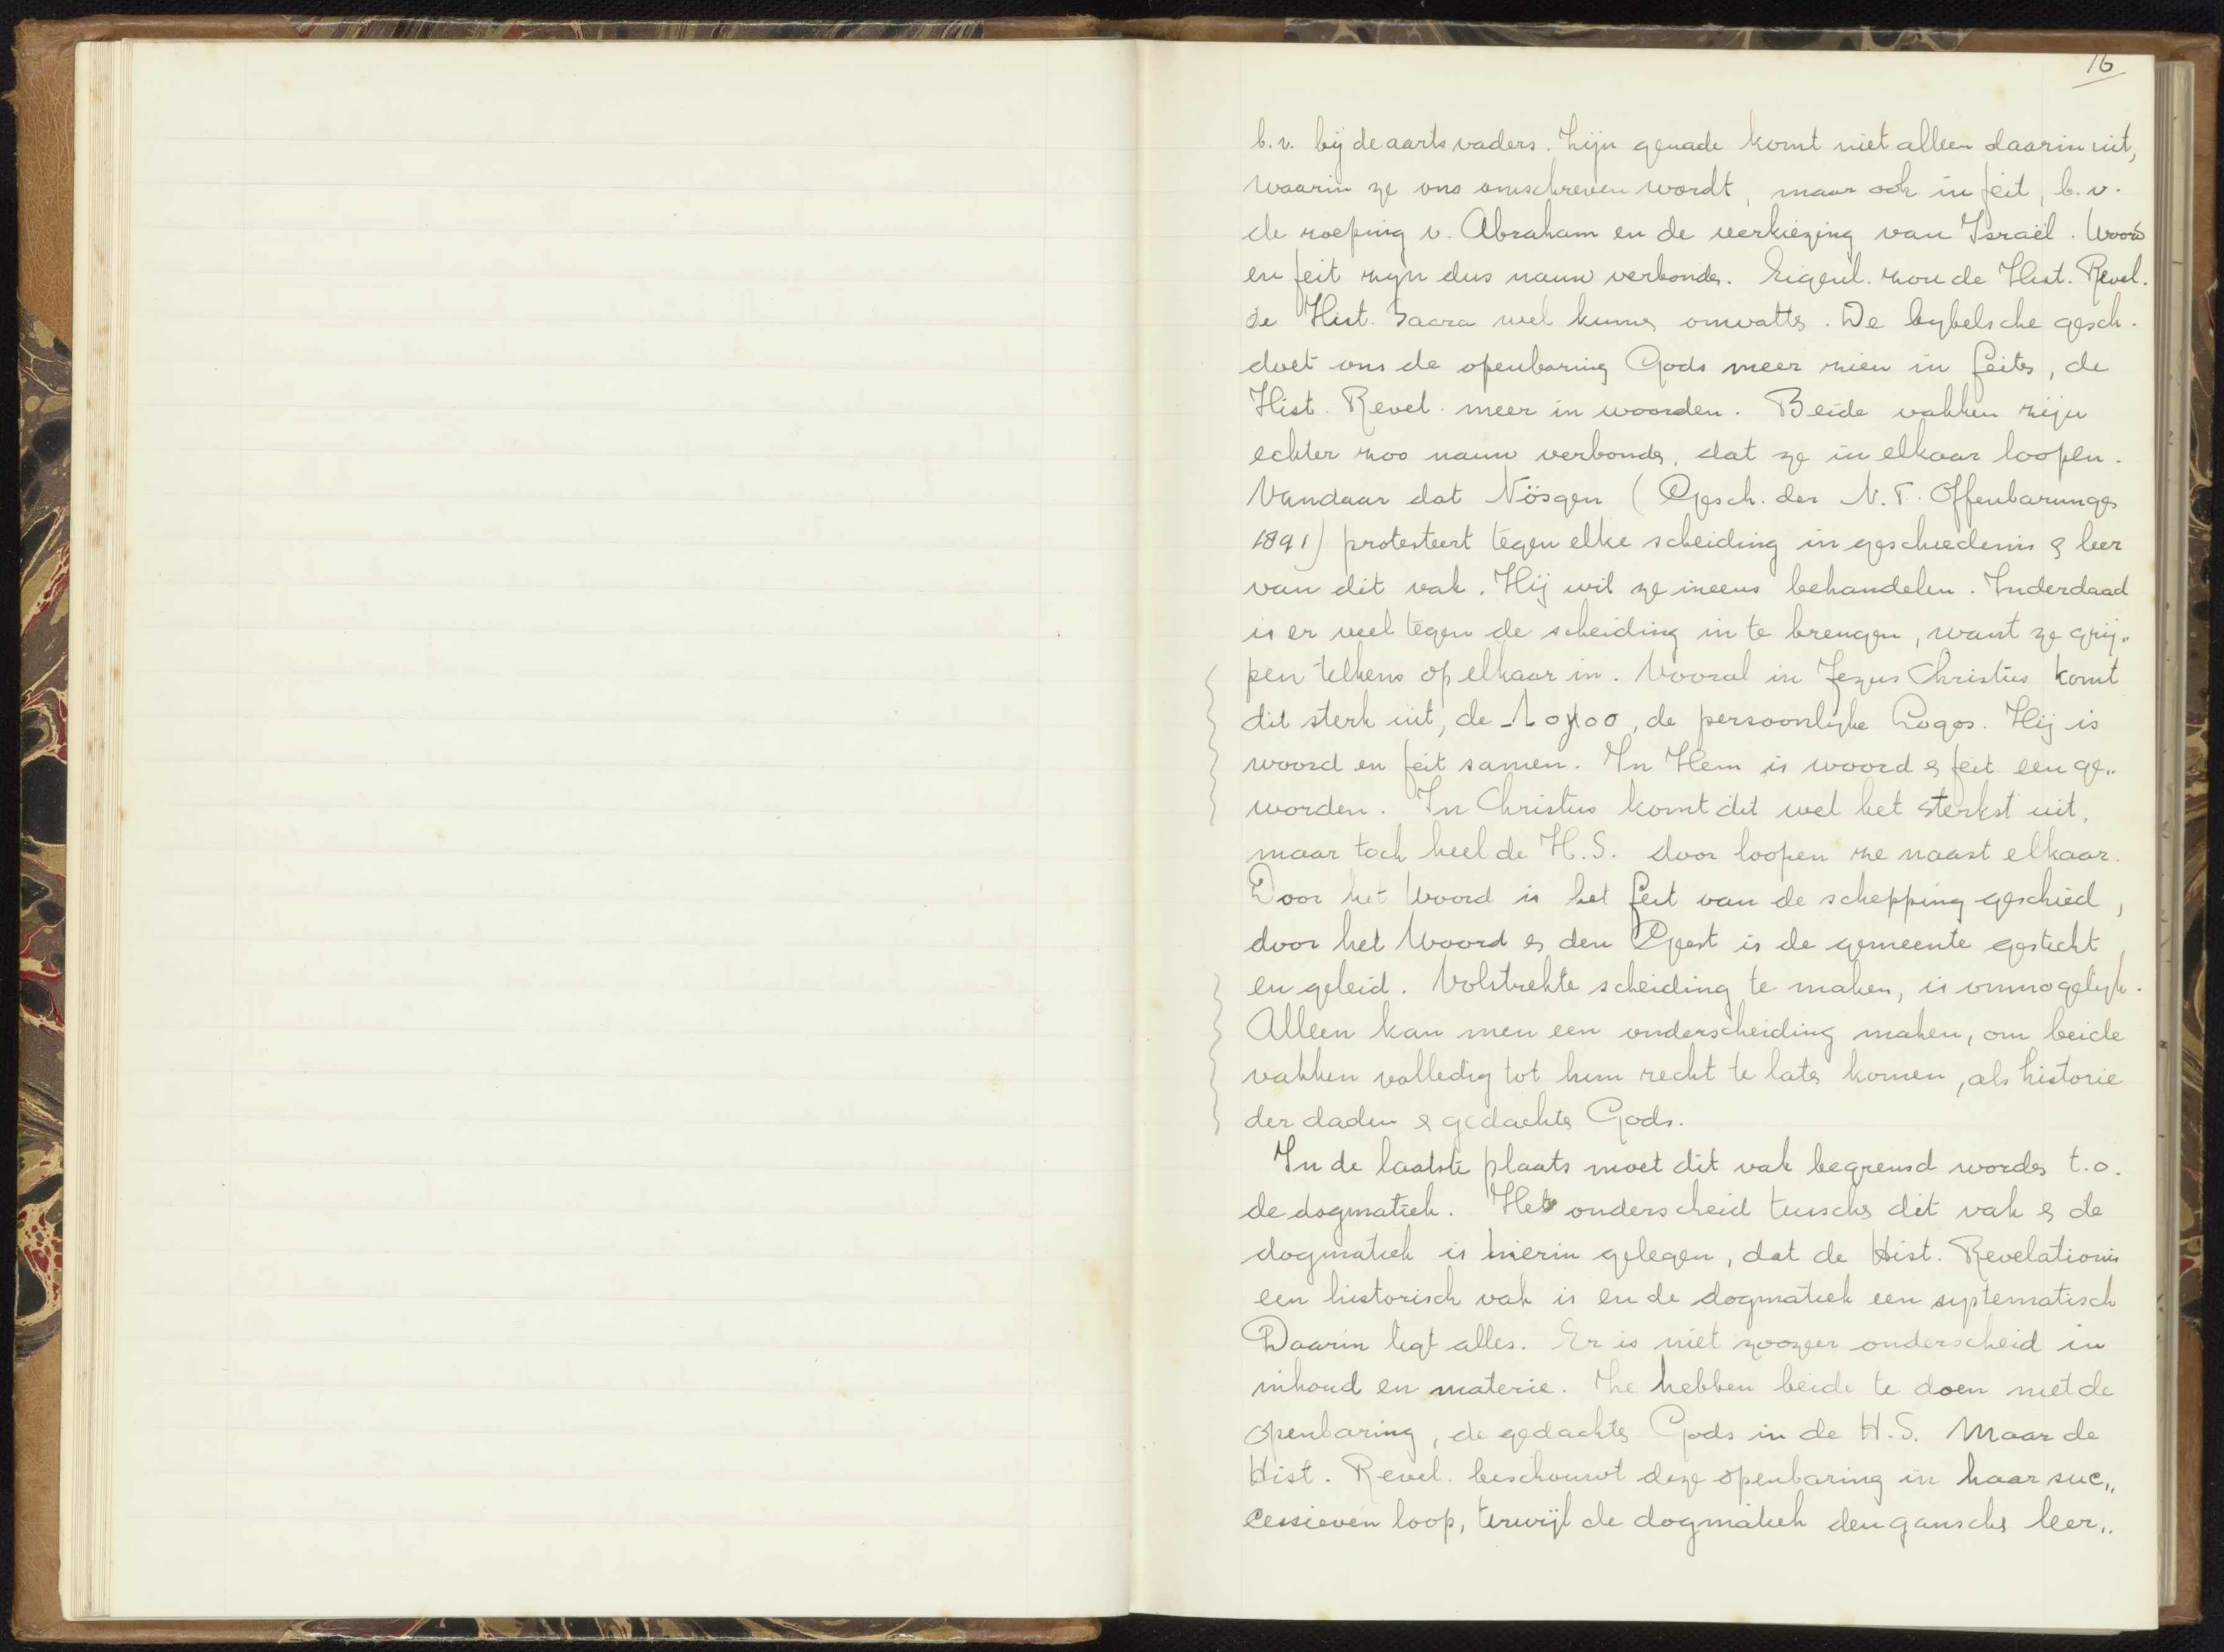 16
b.v. bij de aartsvaders. Zijn genade komt niet alleen daarin uit,
waarin ze ons omschreven wordt, maar ook in feit, b.v.
de roeping v. Abraham en de verkiezing van Israël. Woord
en feit zijn dus nauw verbonden. Eigenl. zou de Hist. Revel.
de Hist. Sacra wel kunnen omvatten. De bijbelsche gesch.
doet ons de openbaring Gods meer zien in feiten, de
Hist. Revel. meer in woorden. Beide vakken zijn
echter zoo nauw verbonden, dat ze in elkaar loopen.
Vandaar dat Nösgen (Gesch. der N.T. Offenbarungen
1891) protesteert tegen elke scheiding in geschiedenis & leer
van dit vak. Hij wil ze ineens behandelen. Inderdaad
is er veel tegen de scheiding in te brengen, want ze grij„
pen telkens op elkaar in. Vooral in Jezus Christus komt
dit sterk uit, de Λογος, de persoonlijke Logos. Hij is
woord en feit samen. In Hem is woord & feit een ge„
worden. In Christus komt dit wel het sterkst uit,
maar toch heel de H.S. door loopen ze naast elkaar.
Door het Woord is het feit van de schepping geschied,
door het Woord & den Geest is de gemeente gesticht
en geleid. Volstrekte scheiding te maken, is onmogelijk.
Alleen kan men een onderscheiding maken, om beide
vakken volledig tot hun recht te laten komen, als historie
der daden & gedachten Gods.
In de laatste plaats moet dit vak begrensd worden t.o.
de dogmatiek. Het onderscheid tusschen dit vak & de
dogmatiek is hierin gelegen, dat de Hist. Revelationis
een historisch vak is en de dogmatiek een systematisch
Daarin ligt alles. Er is niet zoozeer onderscheid in
inhoud en materie. Ze hebben beide te doen met de
openbaring, de gedachten Gods in de H.S. Maar de
Hist. Revel. beschouwt deze openbaring in haar suc„
cessieven loop, terwijl de dogmatiek den ganschen leer„